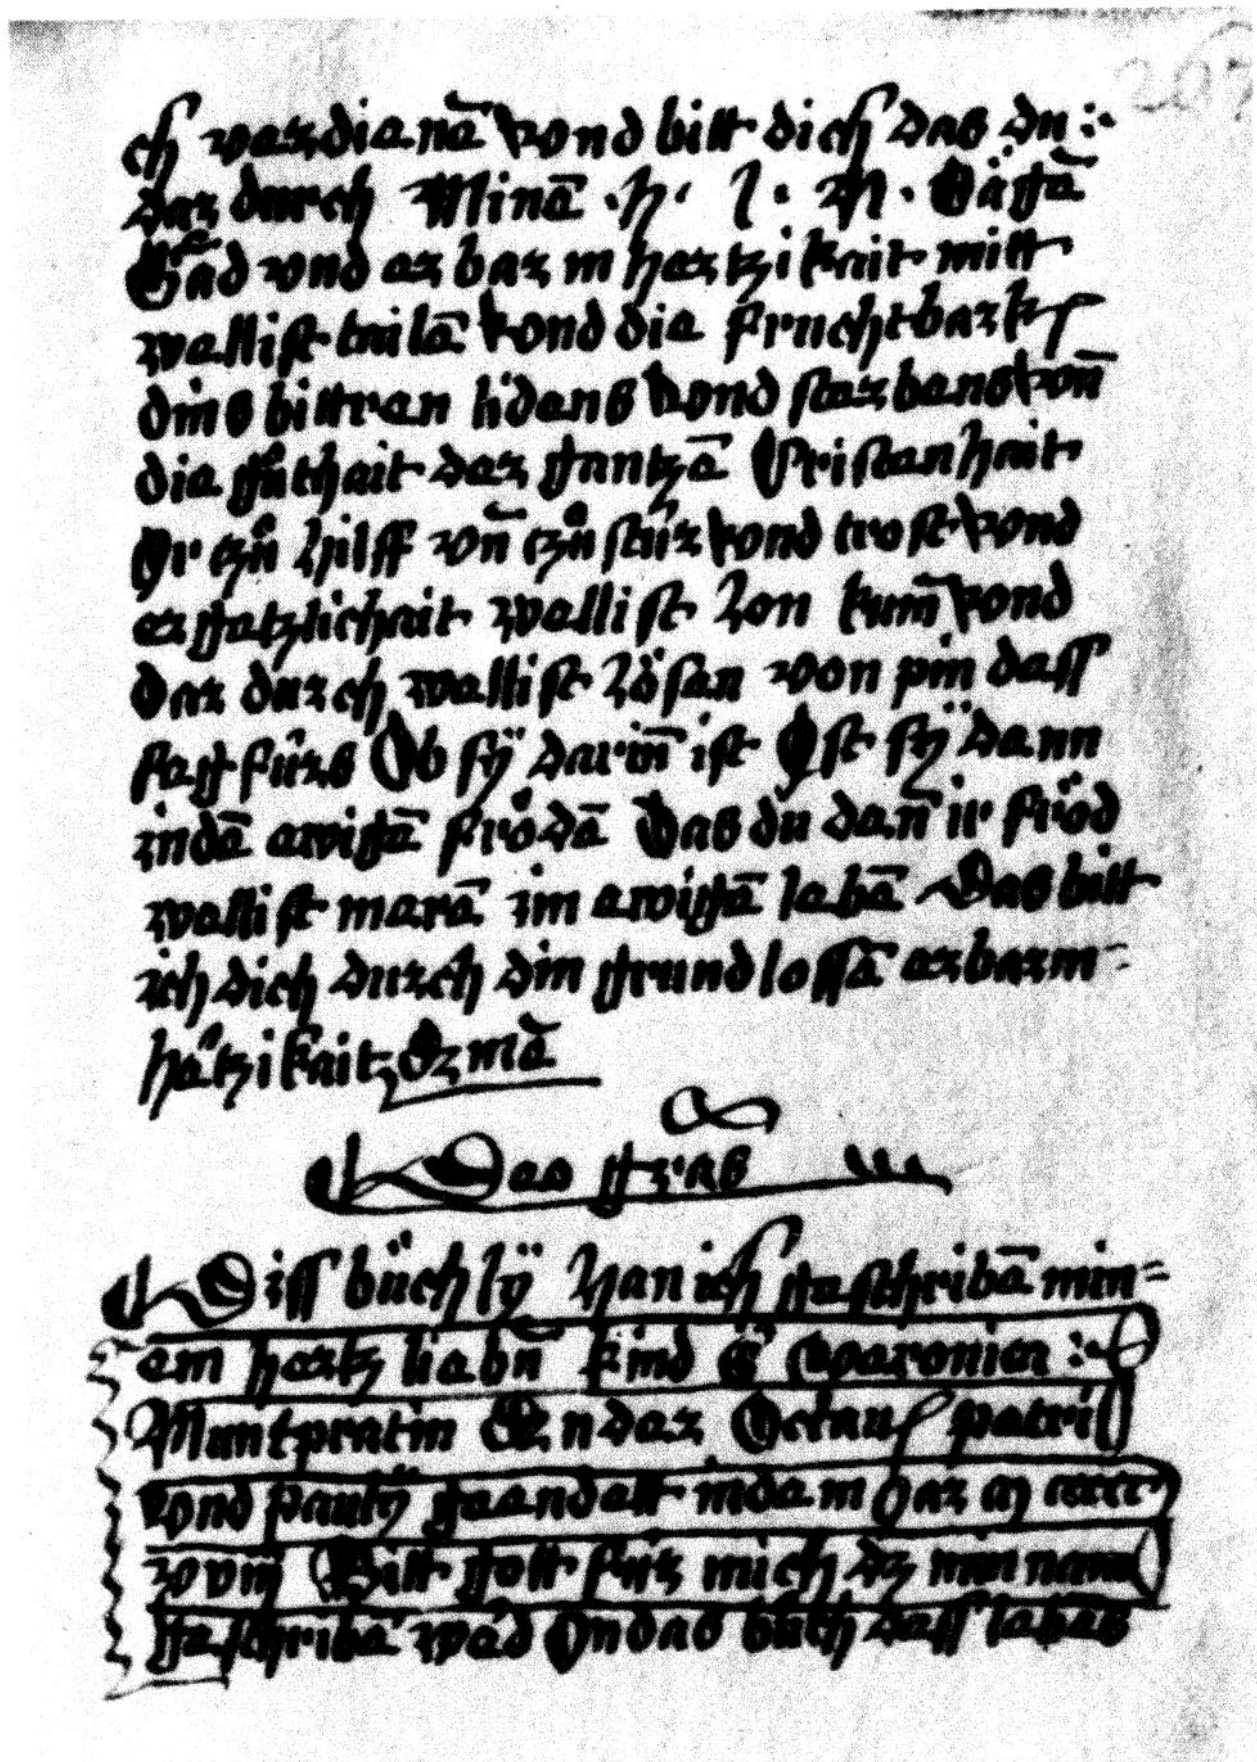 ch verdienē vnd bitt dich das du :·
der durch Minē · h · l · M · Gůttē
Gnͦad vnd erbarmhertzikait mitt
wellist tailē vnd die fruchtbark
dins bittren lidens vnd sterbens vn̄
die gůthait der gantzē Cristanhait
Ir tzů hilff vn̄ tzů stür vnd trost vnd
ergetzlichait wellist Lon kum̄ vnd
Der durch wellist Lösen von pin dess
fegfürs Ob sÿ darin̄ ist Ist sÿ dann
indē ewigē frödē Das du dan̄ ir fröd
wellist merē im ewigē lebē Das bitt
ich dich durch din grundlossē erbarm-
hertzikait Amē
Das grab
Diss büchlÿ Han ich geschribē min=
em hertz liebn̄ kind S Veronicn :
Muntpratin An der Octauf petri
vnd pauly geendett indem Jar cccc
xvviij Bitt gott für mich dz min nam
geschribē werd In das bůch dess lebes